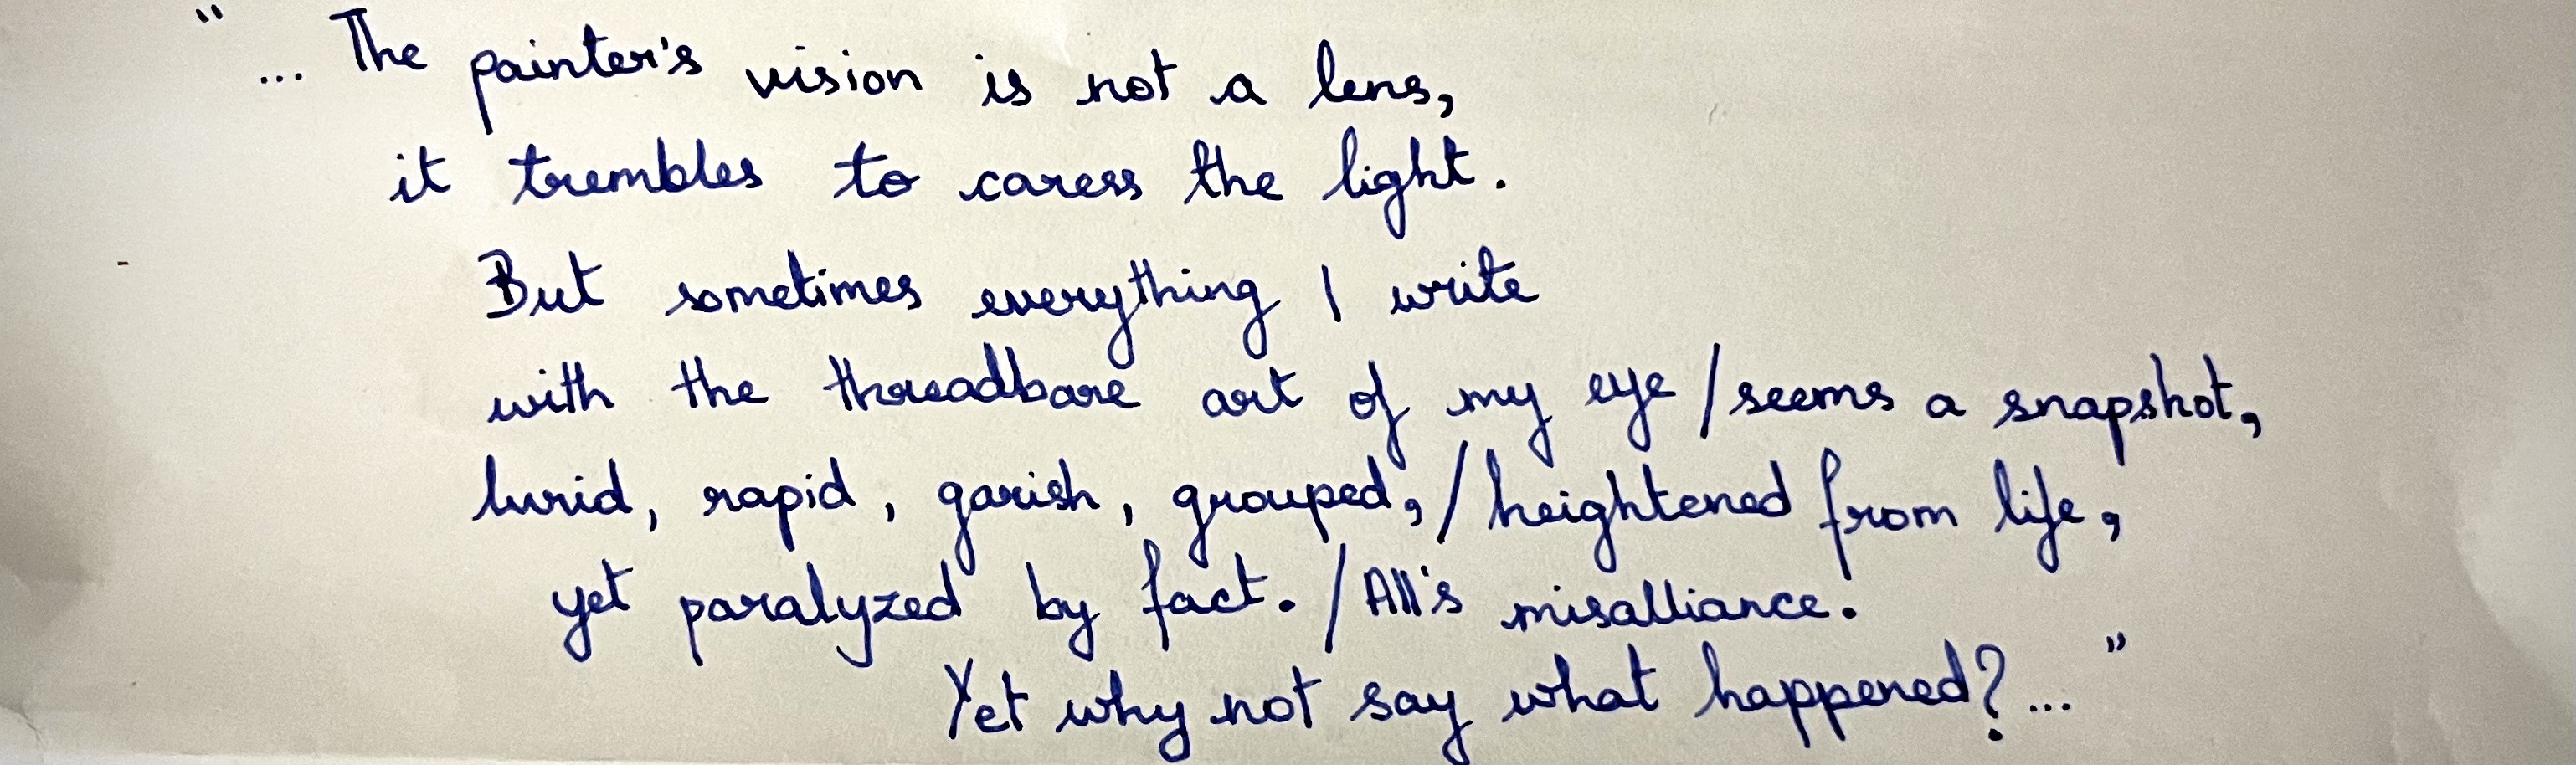 “... The painter's vision is not a lens,
it trembles to caress the light.
But sometimes everything I write
with the threadbare art of my eye / seems a snapshot,
lurid, rapid, garish, grouped, / heightened from life,
yet paralyzed by fact. / All's misalliance.
Yet why not say what happened?...”